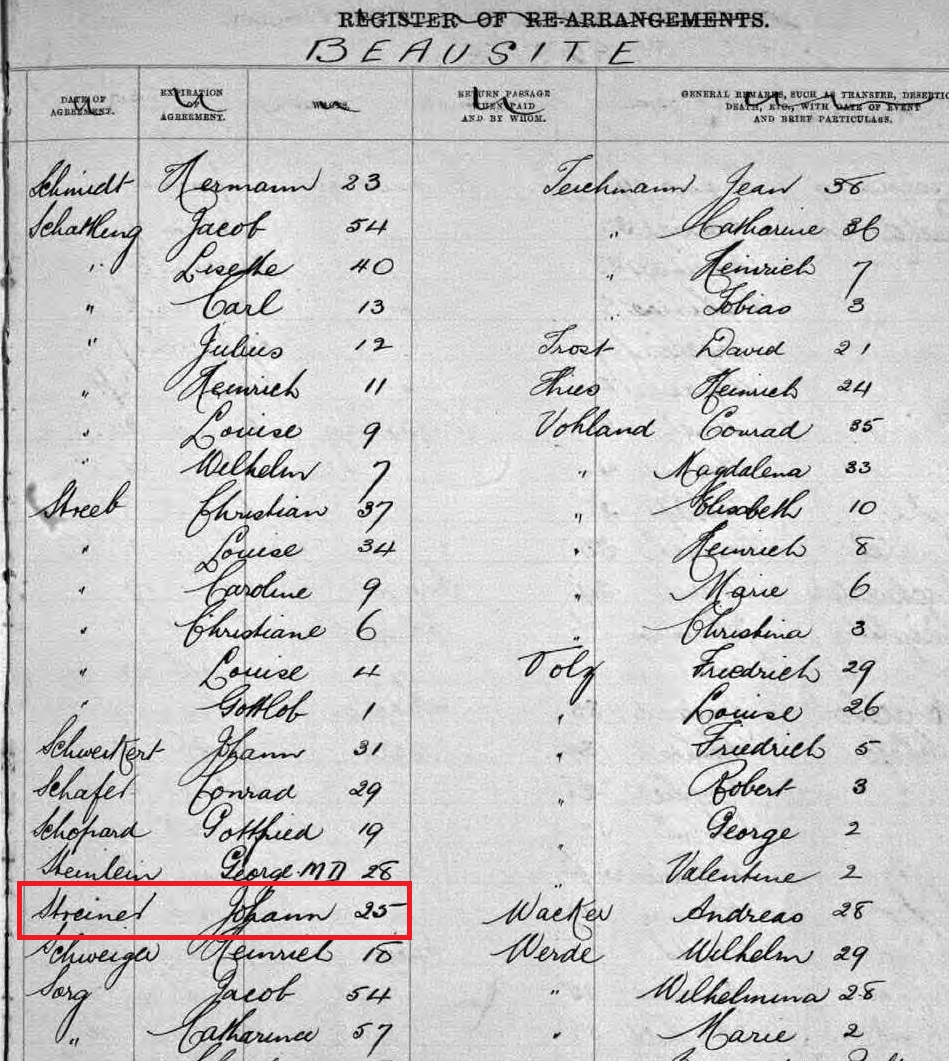 REGISTER OF RE-ARRANGEMENTS.
BEAUSITE
DATE OF AGREEMENT.
EXPIRATION OF AGREEMENT.
WAGES.
RETURN PASSAGE WHEN PAID AND BY WHOM.
GENERAL REMARKS, SUCH AS TRANSFER, DESERTIO
DEATH, ETC., WITH DATE OF EVENT
AND BRIEF PARTICULARS.
Schmidt Hermann 23
Schattling Jacob 54
" Lisette 40
" Carl 13
" Julius 12
" Heinrich 11
" Louise 9
" Wilhelm 7
Streeb Christian 37
" Louise 34
" Caroline 9
" Christiane 6
" Louise 4
" Gottlob 1
Schweikert Johann 31
Schafer Conrad 29
Schopard Gottfried 19
Steinlein George M D 28
Streiner Johann 25
Schweiger Heinrich 18
Sorg Jacob 54
" Catharina 57
Teichmann Jean 38
" Catharine 36
" Heinrich 7
Tobias 3
Trost David 21
Thies Heinrich 24
Vohland Conrad 35
" Magdalena 33
" Elisabeth 10
" Heinrich 8
" Marie 6
" Christina 3
Volz Friedrich 29
" Louise 26
" Friedrich 5
" Robert 3
" George 2
" Valentine 2
Wacker Andreas 28
Werde Wilhelm 29
" Wilhelmina 28
" Marie 2